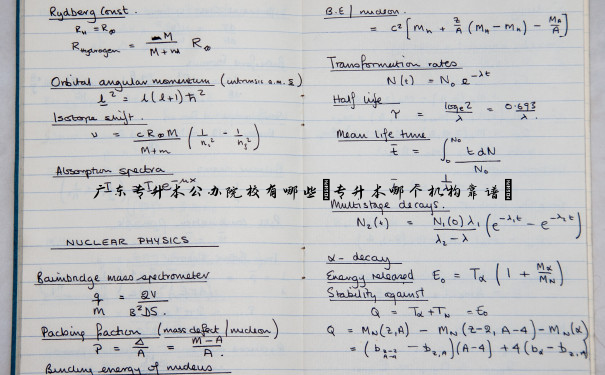 Rydberg Const.
R_H = R_∞
R_Hydrogen = M / (M + m) R_∞
Orbital angular momentum (intrinsic a.m. s)
l² = l(l+1)ħ²
Isotope shift.
ν = cR_∞M / (M+m) (1/n₁² - 1/n₂²)
Absorption spectra
广东专升本公办院校有哪些 专升本哪个机构靠谱
NUCLEAR PHYSICS
Bainbridge mass spectrometer
q/m = 2V / B²DS.
Packing fraction (mass defect / nucleon)
P = Δ/A = (M-A)/A.
Binding energy of nucleus
B.E / nucleon.
= c² [M_n + Z/A (M_H - M_n) - M_A/A]
Transformation rates
N(t) = N₀ e^-λt
Half life
τ = log_e 2 / λ = 0.693 / λ.
Mean life time
t̄ = ∫₀^N₀ t dN / N₀
Multistage decays.
N₂(t) = N₁(0)λ₁ / (λ₂-λ) (e^-λ₁t - e^-λ₂t)
α - decay
Energy released E₀ = T_α (1 + M_α/M_N)
Stability against
Q = T_α + T_N = E₀
Q = M_N(Z,A) - M_N(Z-2, A-4) - M_N(α)